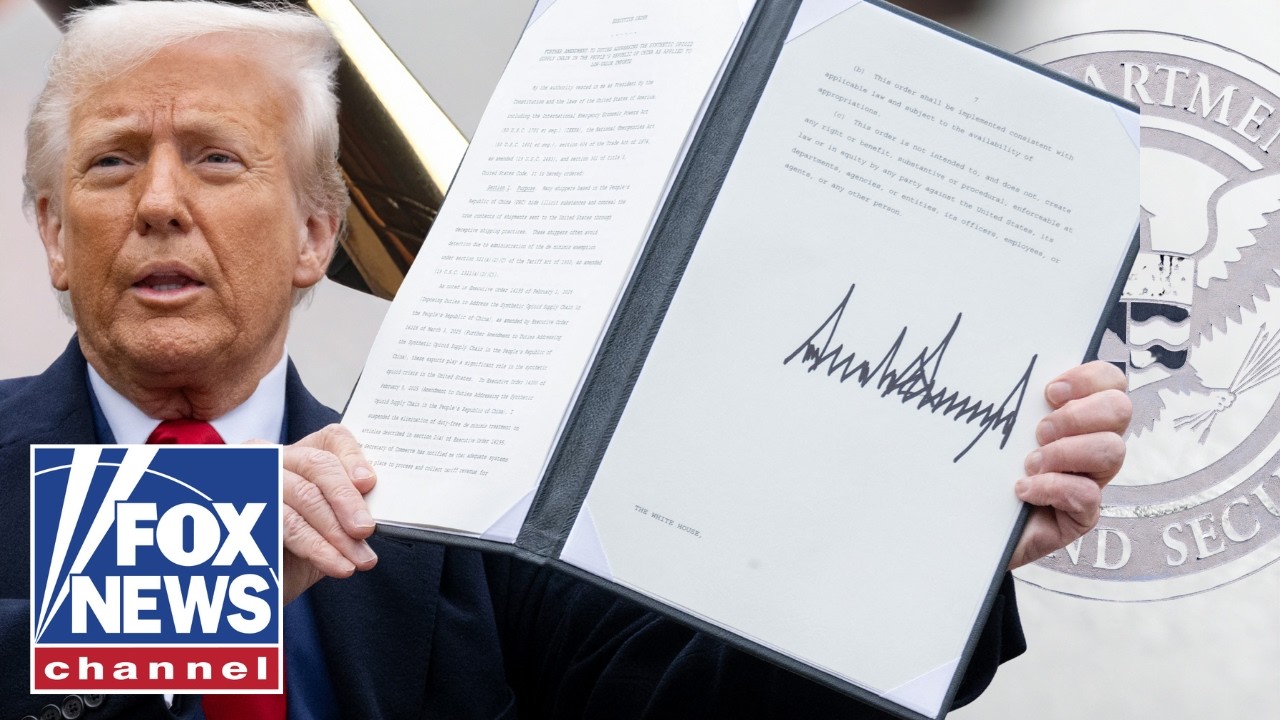 EXECUTIVE ORDER
FURTHER AMENDMENT TO DUTIES ADDRESSING THE SYNTHETIC OPIOID
SUPPLY CHAIN IN THE PEOPLE'S REPUBLIC OF CHINA AS APPLIED TO
LOW-VALUE IMPORTS
By the authority vested in me as President by the
Constitution and the laws of the United States of America,
including the International Emergency Economic Powers Act
(50 U.S.C. 1701 et seq.) (IEEPA), the National Emergencies Act
(50 U.S.C. 1601 et seq.), section 604 of the Trade Act of 1974,
as amended (19 U.S.C. 2483), and section 301 of title 3,
United States Code, it is hereby ordered:
Section 1. Purpose. Many shippers based in the People's
Republic of China (PRC) hide illicit substances and conceal the
true contents of shipments sent to the United States through
deceptive shipping practices. These shippers often avoid
detection due to administration of the de minimis exemption
under section 321(a)(2)(C) of the Tariff Act of 1930, as amended
(19 U.S.C. 1321(a)(2)(C)).
As noted in Executive Order 14195 of February 1, 2025
(Imposing Duties to Address the Synthetic Opioid Supply Chain in
the People's Republic of China), as amended by Executive Order
14228 of March 3, 2025 (Further Amendment to Duties Addressing
the Synthetic Opioid Supply Chain in the People's Republic of
China), these exports play a significant role in the synthetic
opioid crisis in the United States. In Executive Order 14200 of
February 5, 2025 (Amendment to Duties Addressing the Synthetic
Opioid Supply Chain in the People's Republic of China), I
suspended the elimination of duty-free de minimis treatment on
articles described in section 2(a) of Executive Order 14195
Secretary of Commerce has notified me that adequate systems
place to process and collect tariff revenue for
7
(b) This order shall be implemented consistent with
applicable law and subject to the availability of
appropriations.
(c) This order is not intended to, and does not, create
any right or benefit, substantive or procedural, enforceable at
law or in equity by any party against the United States, its
departments, agencies, or entities, its officers, employees, or
agents, or any other person.
THE WHITE HOUSE,
FOX
NEWS
channel